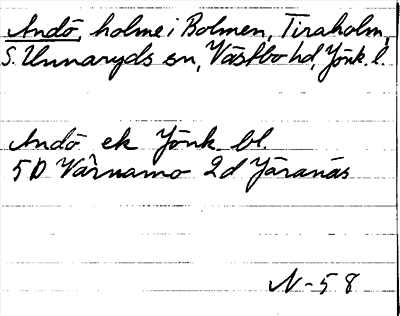 Andö, holme i Bolmen, Tiraholm,
S. Unnaryds sn, Västbo hd, Jönk. l.
Andö ek Jönk. bl.
5D Värnamo 2d Järanäs
N-58